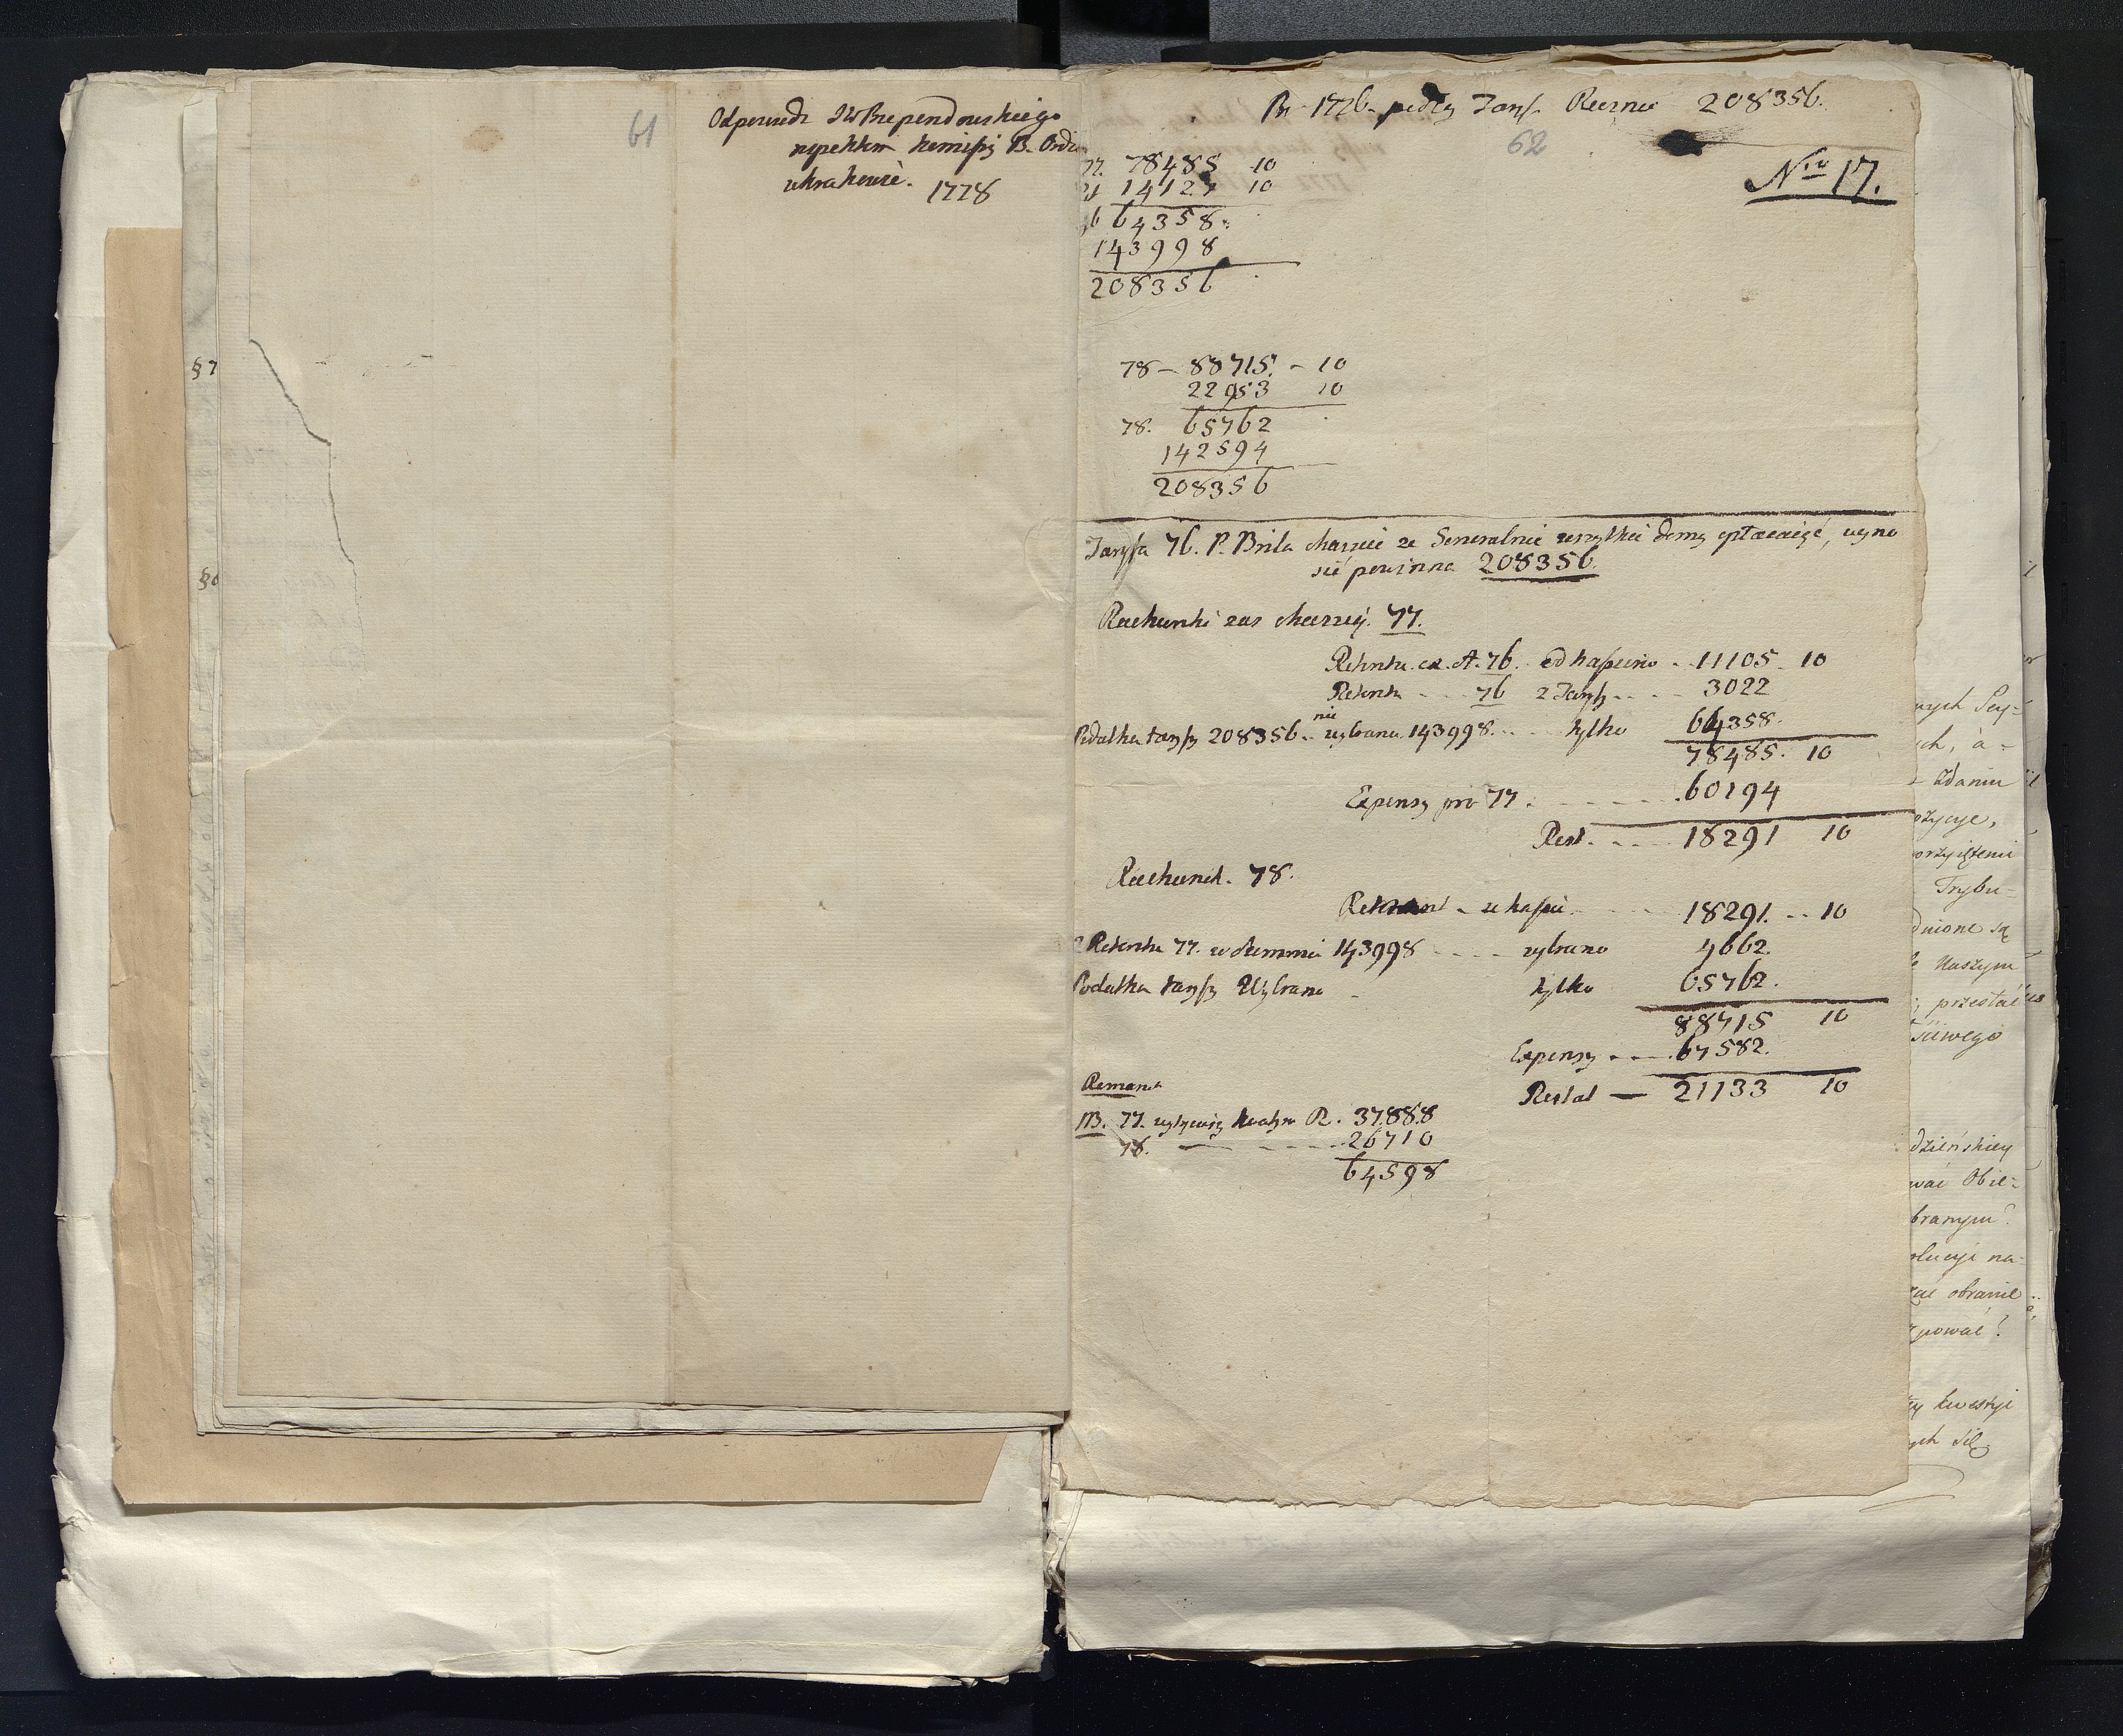 61
Odpowiedz JW Brependowskiego
względem Komissÿ B. Ordÿ
w Krakowie. 1778
§7
§8
Pr. 1776 podług Taryf. Rocznie 208356.
62
Nro 17.
77. 78485 10
14127 10
64358.
143998
208356
78 – 88715. – 10
22953 10
78. 65762
142594
208356
Taryfa 76. P. Brila chcącie że Generalnie wszytkie domy opłacaiąć, wyno
sić powinna 208356.
Rachunki zas 77.
Retenta ex A. 76. 11105. 10
Retenta 76 z Taryfy 3022
Podatku taryfy 208356 nie wybrano 143998. tylko 64358.
78485. 10
Expensy pro 77. 60194
Rest. 18291 10
Rachunek. 78.
w kassie 18291. – 10
Z Retentu 77. w summie 143998 wybrano 4662.
Podatku taryfy Wybrano tylko 65762.
88715 10
Expensy 67582.
Restat — 21133 10
Remanet
NB. 77. 37888
78. — 26710
64598
wych Sey=
ych, á=
zdaniu
ożycye,
orzyiętemi
Trybu=
dnione są
Naszym
przestać
dzieńskiey
wać Obie=
branym?
olucyi na=
obranie
pować?
kwestyi
ych sił